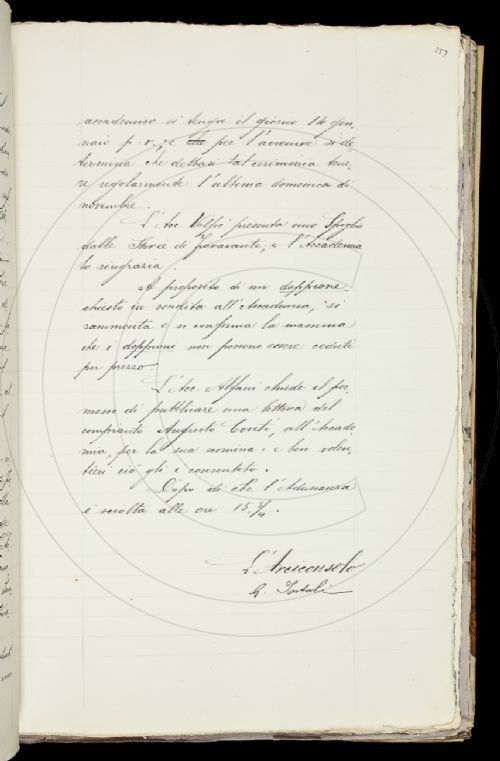 257
accademico si tenga il giorno 14 gen-
naio p. v.; e che per l'avvenire si de-
termina che debbasi tal cerimonia tene-
re regolarmente l'ultima domenica di
novembre.
L'Acc. Volpi presenta uno Spoglio
dalle Storie di Fioravante, e l'Accademia
lo ringrazia.
A proposito di un doppione
chiesto in vendita all'Accademia, si
rammenta e si conferma la massima
che i doppioni non possono essere ceduti
per prezzo.
L'Acc. Alfani chiede il per-
messo di pubblicare una lettera del
compianto Augusto Conti, all'Accade-
mia, per la sua nomina: e ben volen-
tieri ciò gli è consentito.
Dopo di che l'Adunanza
è sciolta alle ore 15 3/4.
L'Arciconsolo
G. Tortoli